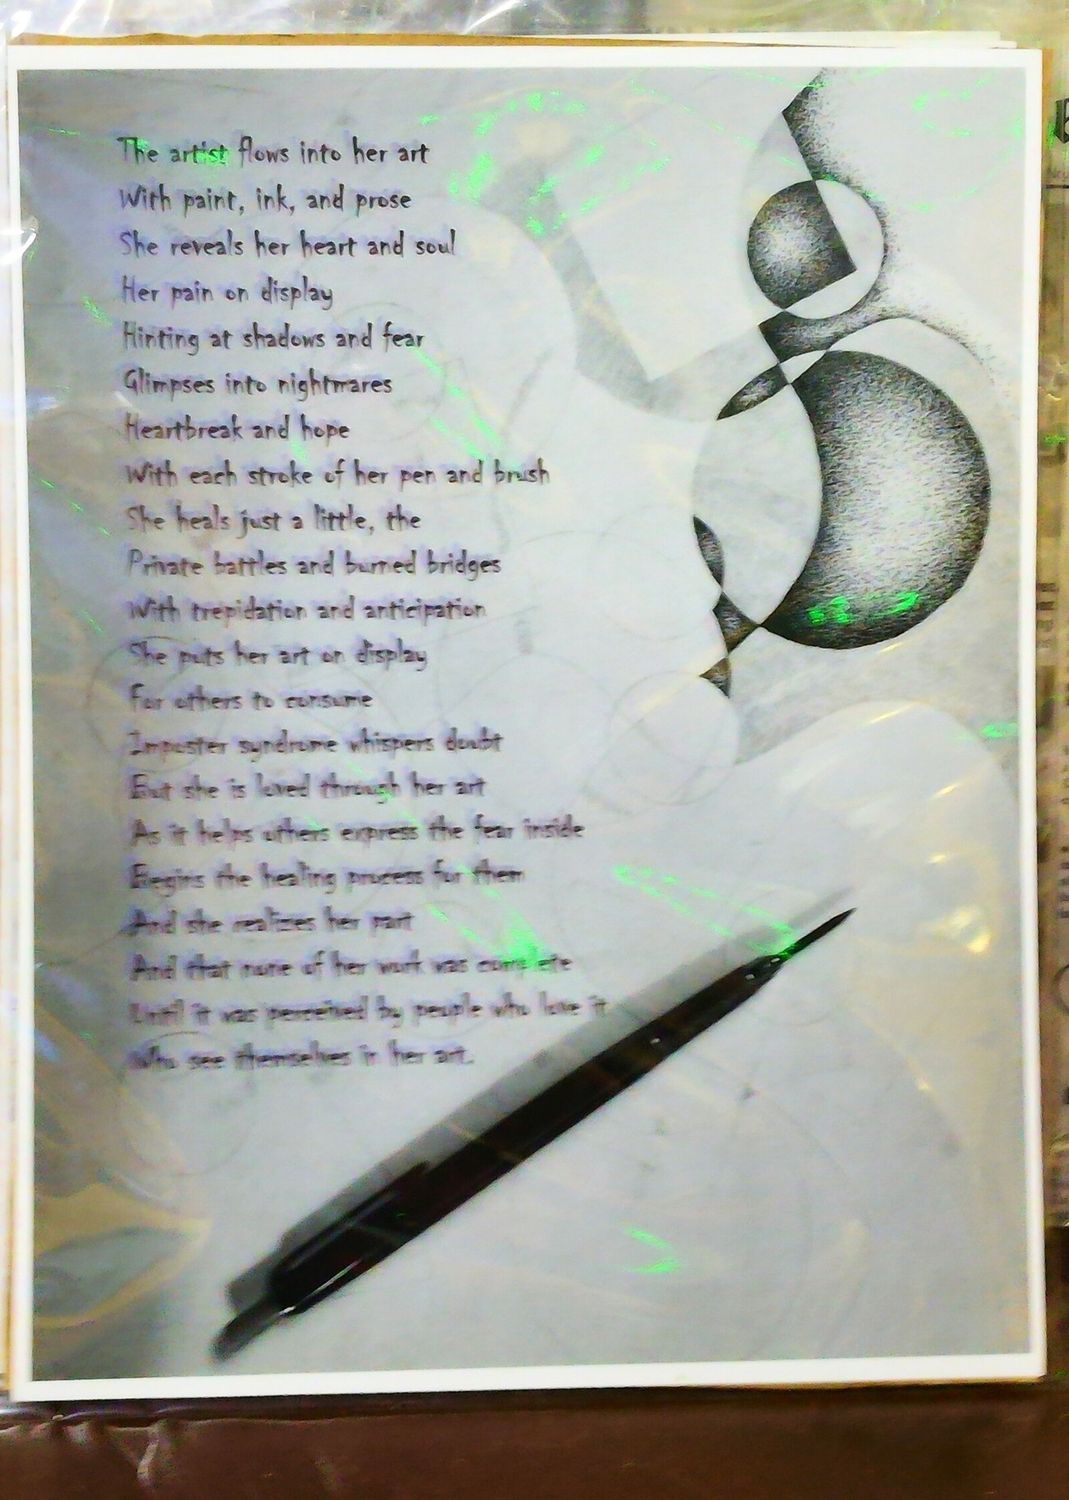 The artist flows into her art
With paint, ink, and prose
She reveals her heart and soul
Her pain on display
Hinting at shadows and fear
Glimpses into nightmares
Heartbreak and hope
With each stroke of her pen and brush
She heals just a little, the
Private battles and burned bridges
With trepidation and anticipation
She puts her art on display
For others to consume
Imposter syndrome whispers doubt
But she is loved through her art
As it helps others express the fear inside
Begins the healing process for them
And she realizes her part
And that none of her work was complete
Until it was perceived by people who love it
Who see themselves in her art.